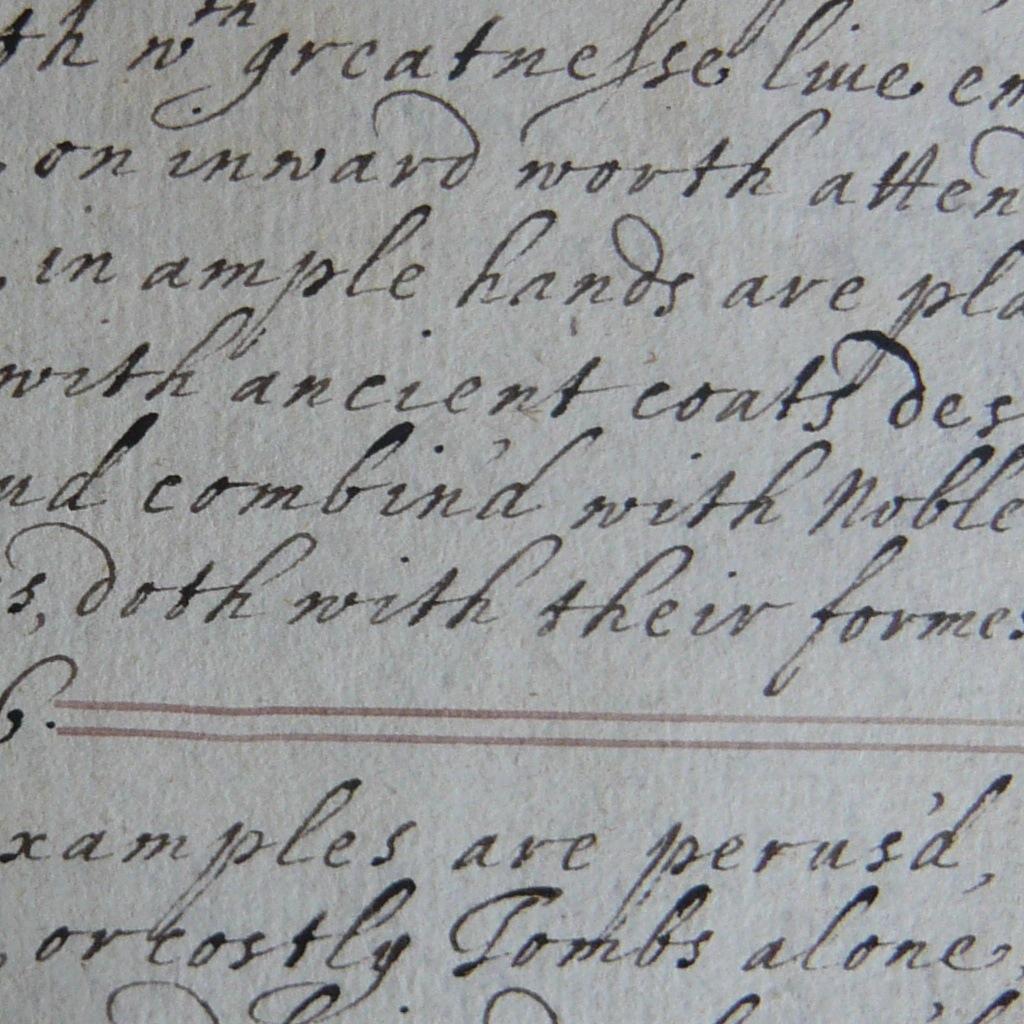 th wth greatnesse liue en
on inward worth atten
in ample hands are pla
with ancient coats des
nd combin'd with Noble
s, doth with their formes
6.
xamples are perus'd,
, or costly Tombs alone,